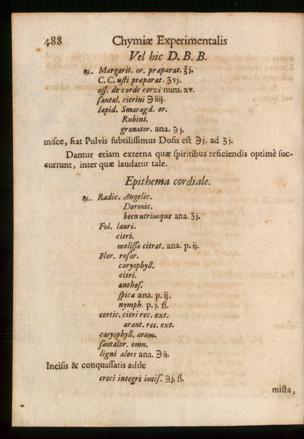 488 Chymiæ Experimentalis
Vel hic D. B. B.
℞. Margarit. or. præparat. ℥j.
C. C. usti præparat. ʒvj.
oss. de corde cervi num. xv.
santal. citrini ℈iiij.
lapid. Smaragd. or.
Rubini.
granator. ana. ℈j.
misce, fiat Pulvis subtilissimus Dosis est ℈j. ad ʒj.
Dantur etiam externa quæ spiritibus reficiendis optimè suc-
currunt, inter quæ laudatur tale.
Epithema cordiale.
℞. Radic. Angelic.
Doronic.
been utriusque ana. ʒj.
Fol. lauri.
citri.
melissæ citrat. ana. p. ij.
Flor. rosar.
caryophyll.
citri.
anthos.
spicæ ana. p. ij.
nymph. p. j. ß.
cortic. citri rec. ext.
arant. rec. ext.
caryophyll. arom.
santalor. omn.
ligni aloes ana. ℈ij.
Incisis & conquassatis adde
croci integri incis. ℈j. ß.
mista,